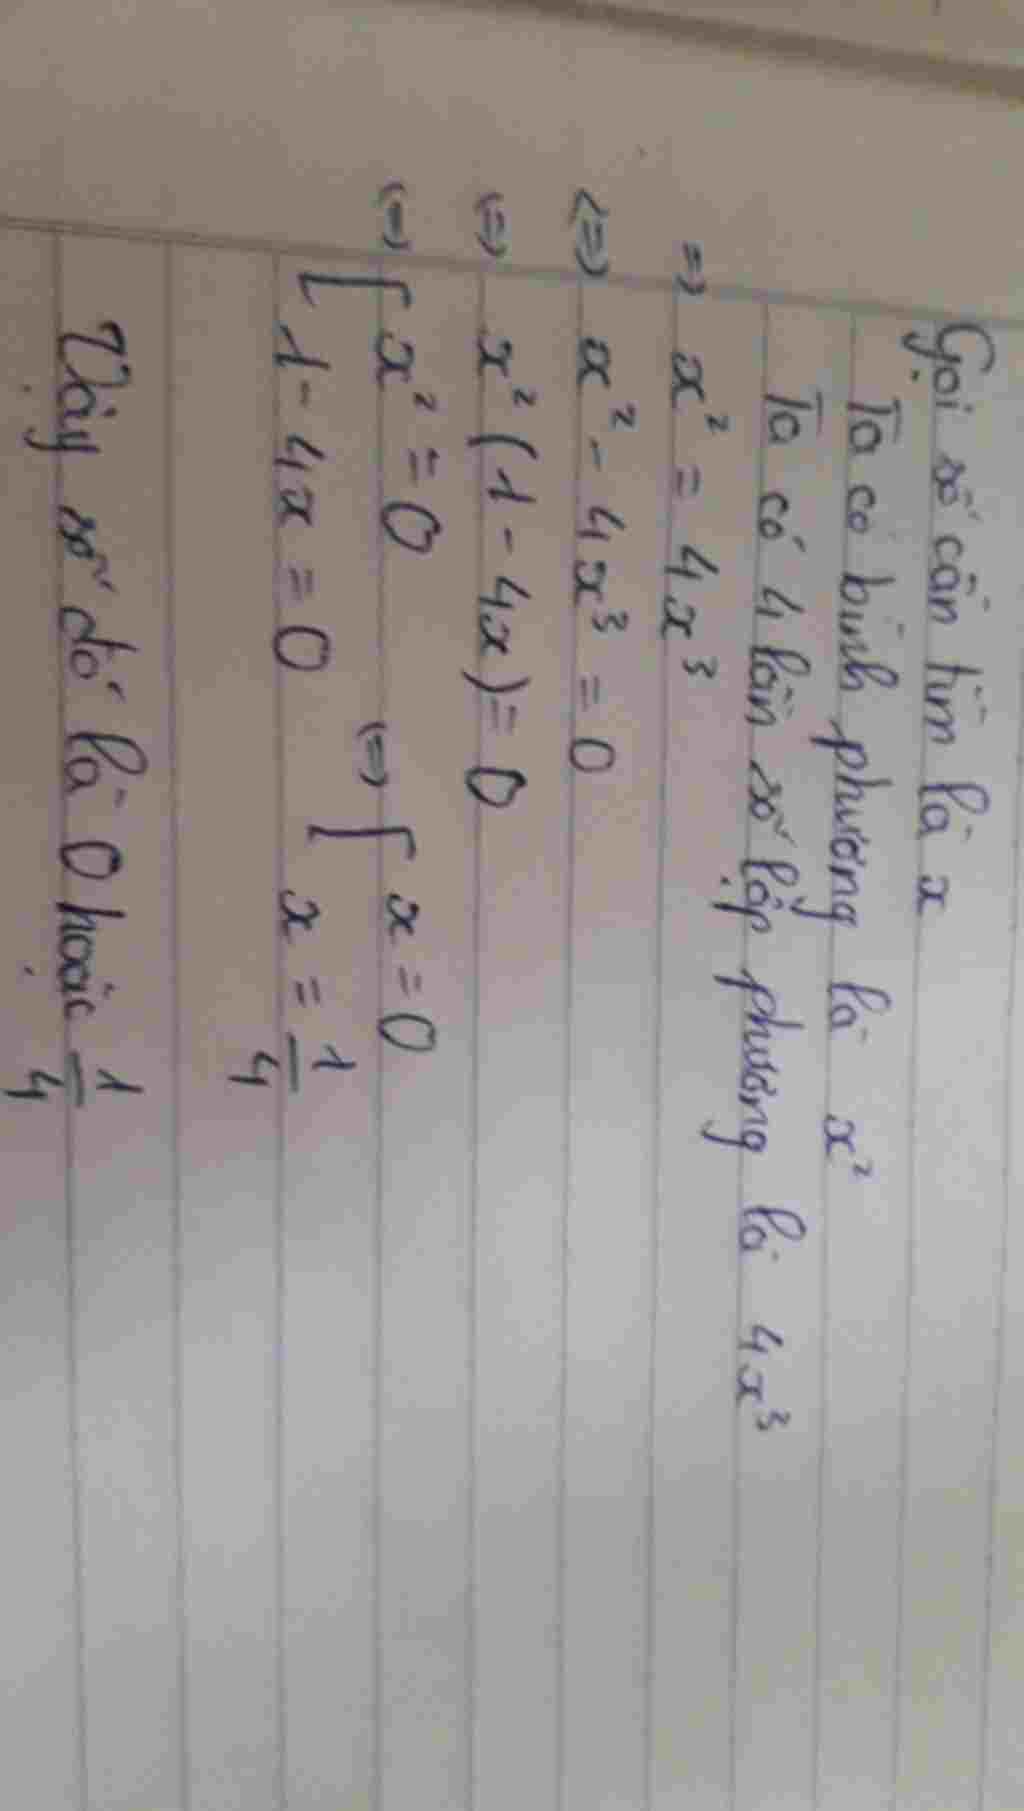 Gọi số cần tìm là x
Ta có bình phương là x²
Ta có 4 lần số lập phương là 4x³
=> x² = 4x³
<=> x² - 4x³ = 0
(=) x² (1 - 4x) = 0
(=) [ x² = 0 (=) [ x = 0
1 - 4x = 0 x = 1/4
Vậy số đó là 0 hoặc 1/4